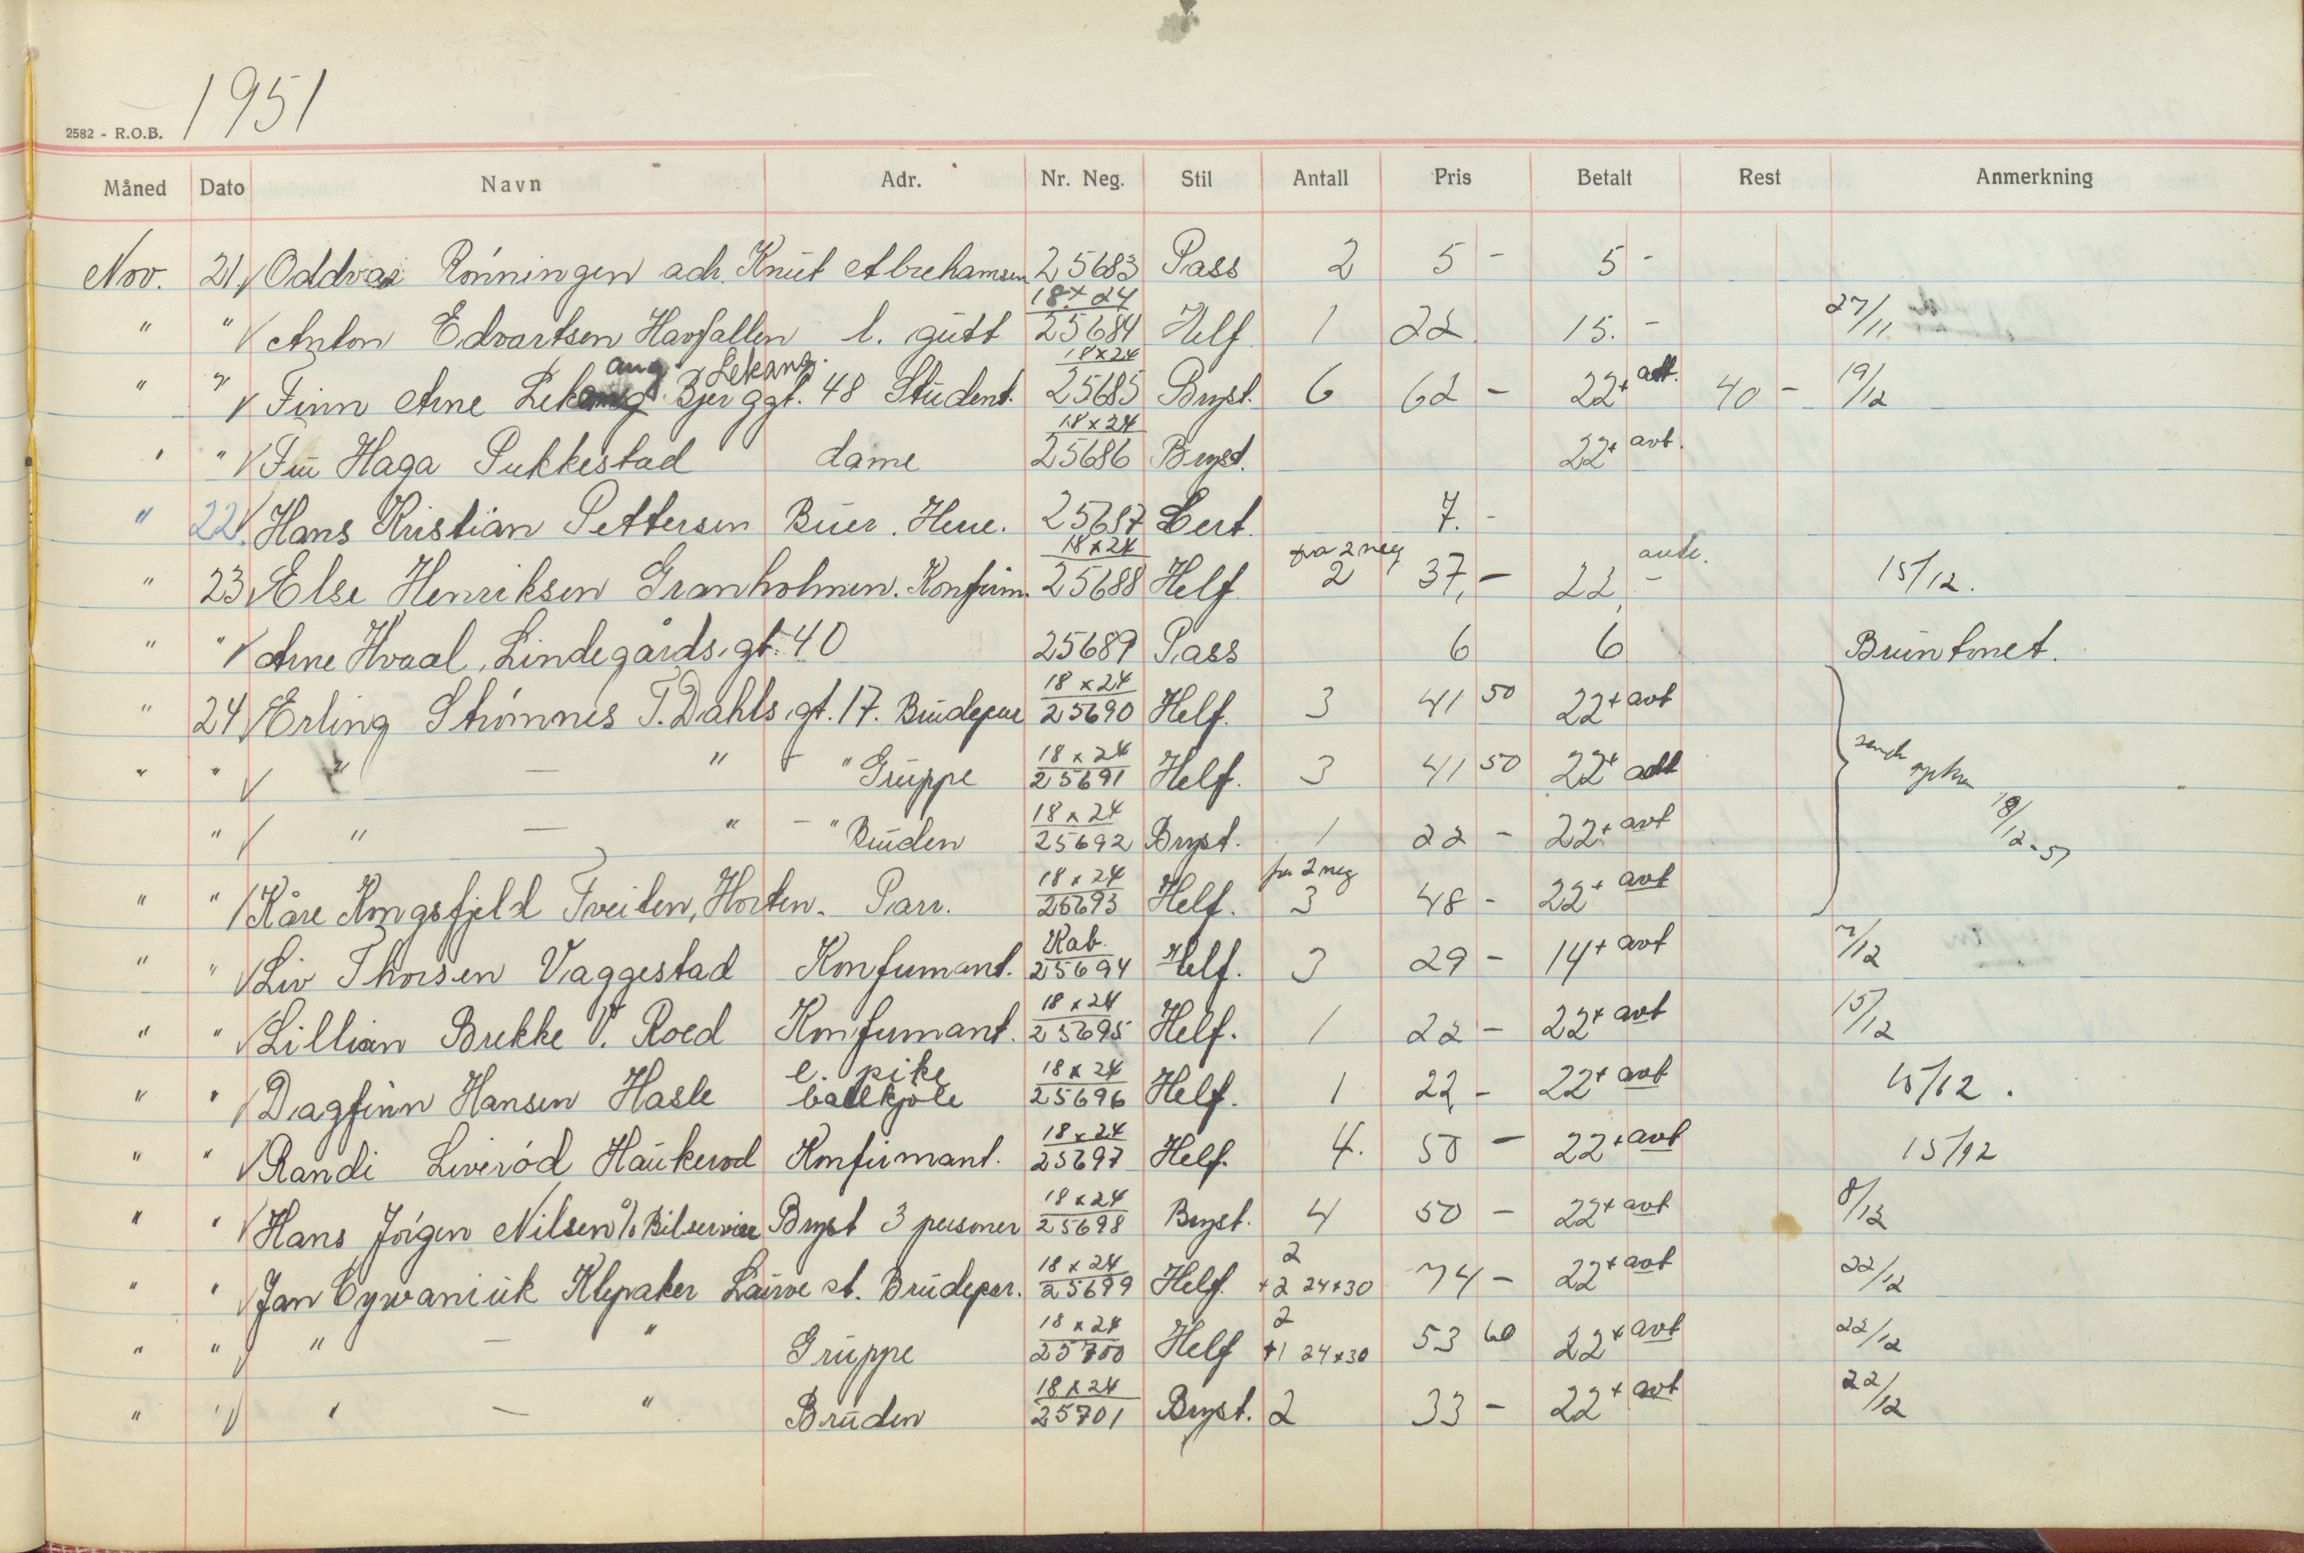 1951
2582 - R.O.B.
Måned Dato Navn Adr. Nr. Neg. Stil Antall Pris Betalt Rest Anmerkning
Nov. 21. Oddvar Rönningen adr. Knut Abrehamsen 25683 Pass 2 5 - 5 -
" " Anton Edvartsen Havfallen l. gutt 18 x 24 25684 Helf. 1 22 15. - 27/11
" " Finn Arne Lekang Lekang. Bjerggt. 48 Student. 18 x 24 25685 Bryst. 6 62 - 22+ avt. 40 - 19/12
" " Fru Haga Pukkestad dame 18 x 24 25686 Bryst. 22+ avt.
" 22. Hans Kristian Pettersen Buer. Herre. 25687 Sert. 7. -
" 23 Else Henriksen Granholmen. Konfirm. 18 x 24 25688 Helf. fra 2 neg 2 37, - 22, - 15/12.
" " Arne Hvaal, Lindegårds. gt. 40 25689 Pass 6 6 Bruntonet.
" 24 Erling Strömnes T. Dahls. gt. 17. Brudepar 18 x 24 25690 Helf. 3 41 50 22+ avt
" " " — " - " Gruppe 18 x 24 25691 Helf. 3 41 50 22+ avt
" " — " - " Bruden 18 x 24 25692 Bryst. 1 22 - 22+ avt 18/12-51
" " Kåre Kongsfjeld Tveiten, Horten. Parr. 18 x 24 25693 Helf. fra 2 neg 3 48 - 22+ avt
" " Liv Thorsen Vaggestad Konfirmant. Kab. 25694 Helf. 3 29 - 14+ avt 7/12
" " Lillian Brekke V. Roed Konfirmant. 18 x 24 25695 Helf. 1 22 - 22+ avt 15/12
" " Dagfinn Hansen Hasle l. pike ballkjole 18 x 24 25696 Helf. 1 22, - 22+ avt 15/12.
" " Randi Liveröd Haukerod Konfirmant. 18 x 24 25697 Helf. 4. 50 - 22+ avt 15/12
" " Hans Jörgen Nilsen % Bilservice Bryst 3 personer 18 x 24 25698 Bryst. 4 50 - 22+ avt 8/12
" " Jan Cywaniuk Klepaker Laurve st. Brudepar. 18 x 24 25699 Helf. 2 + 2 24x30 74 - 22+ avt 22/12
" " " — " Gruppe 18 x 24 25700 Helf 2 +1 24x30 53 60 22+ avt 22/12
" " " — " Bruden 18 x 24 25701 Bryst. 2 33 - 22+ avt 22/12